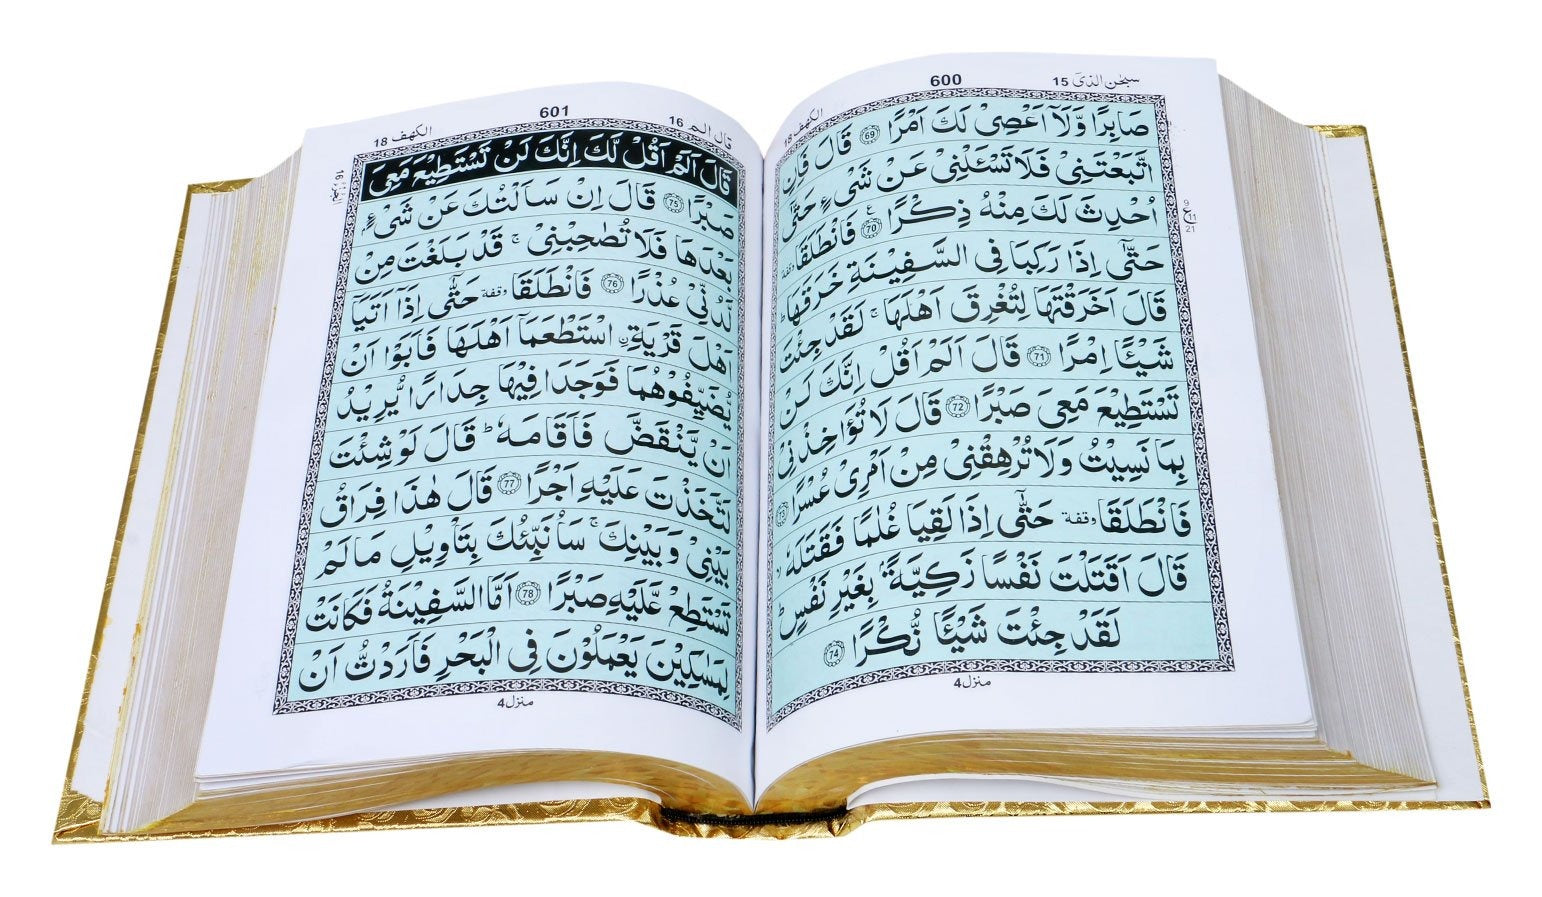 600
سبحٰن الذیٓ 15
الکهف 18
صَابِرًا وَّلَاۤ اَعْصِیْ لَكَ اَمْرًا ۝69 قَالَ فَاِنِ
اتَّبَعْتَنِیْ فَلَا تَسْـَٔلْنِیْ عَنْ شَیْءٍ حَتّٰۤی
اُحْدِثَ لَكَ مِنْهُ ذِكْرًا ۝70 فَانْطَلَقَا وقفة
حَتّٰۤی اِذَا رَكِبَا فِی السَّفِیْنَةِ خَرَقَهَا ؕ
قَالَ اَخَرَقْتَهَا لِتُغْرِقَ اَهْلَهَا ۚ لَقَدْ جِئْتَ
شَیْـًٔا اِمْرًا ۝71 قَالَ اَلَمْ اَقُلْ اِنَّكَ لَنْ
تَسْتَطِیْعَ مَعِیَ صَبْرًا ۝72 قَالَ لَا تُؤَاخِذْنِیْ
بِمَا نَسِیْتُ وَلَا تُرْهِقْنِیْ مِنْ اَمْرِیْ عُسْرًا ۝73
فَانْطَلَقَا وقفة حَتّٰۤی اِذَا لَقِیَا غُلٰمًا فَقَتَلَهٗ ۙ
قَالَ اَقَتَلْتَ نَفْسًا زَكِیَّةًۢ بِغَیْرِ نَفْسٍ ؕ
لَقَدْ جِئْتَ شَیْـًٔا نُّكْرًا ۝74
منزل 4
9
ع 11
21
601
قال الم 16
الکهف 18
قَالَ اَلَمْ اَقُلْ لَّكَ اِنَّكَ لَنْ تَسْتَطِیْعَ مَعِیَ
صَبْرًا ۝75 قَالَ اِنْ سَاَلْتُكَ عَنْ شَیْءٍۭ
بَعْدَهَا فَلَا تُصٰحِبْنِیْ ۚ قَدْ بَلَغْتَ مِنْ
لَّدُنِّیْ عُذْرًا ۝76 فَانْطَلَقَا وقفة حَتّٰۤی اِذَاۤ اَتَیَاۤ
اَهْلَ قَرْیَةِ ِ۟اسْتَطْعَمَاۤ اَهْلَهَا فَاَبَوْا اَنْ
یُّضَیِّفُوْهُمَا فَوَجَدَا فِیْهَا جِدَارًا یُّرِیْدُ
اَنْ یَّنْقَضَّ فَاَقَامَهٗ ؕ قَالَ لَوْ شِئْتَ
لَتَّخَذْتَ عَلَیْهِ اَجْرًا ۝77 قَالَ هٰذَا فِرَاقُ
بَیْنِیْ وَبَیْنِكَ ۚ سَاُنَبِّئُكَ بِتَاْوِیْلِ مَا لَمْ
تَسْتَطِعْ عَّلَیْهِ صَبْرًا ۝78 اَمَّا السَّفِیْنَةُ فَكَانَتْ
لِمَسٰكِیْنَ یَعْمَلُوْنَ فِی الْبَحْرِ فَاَرَدْتُّ اَنْ
منزل 4